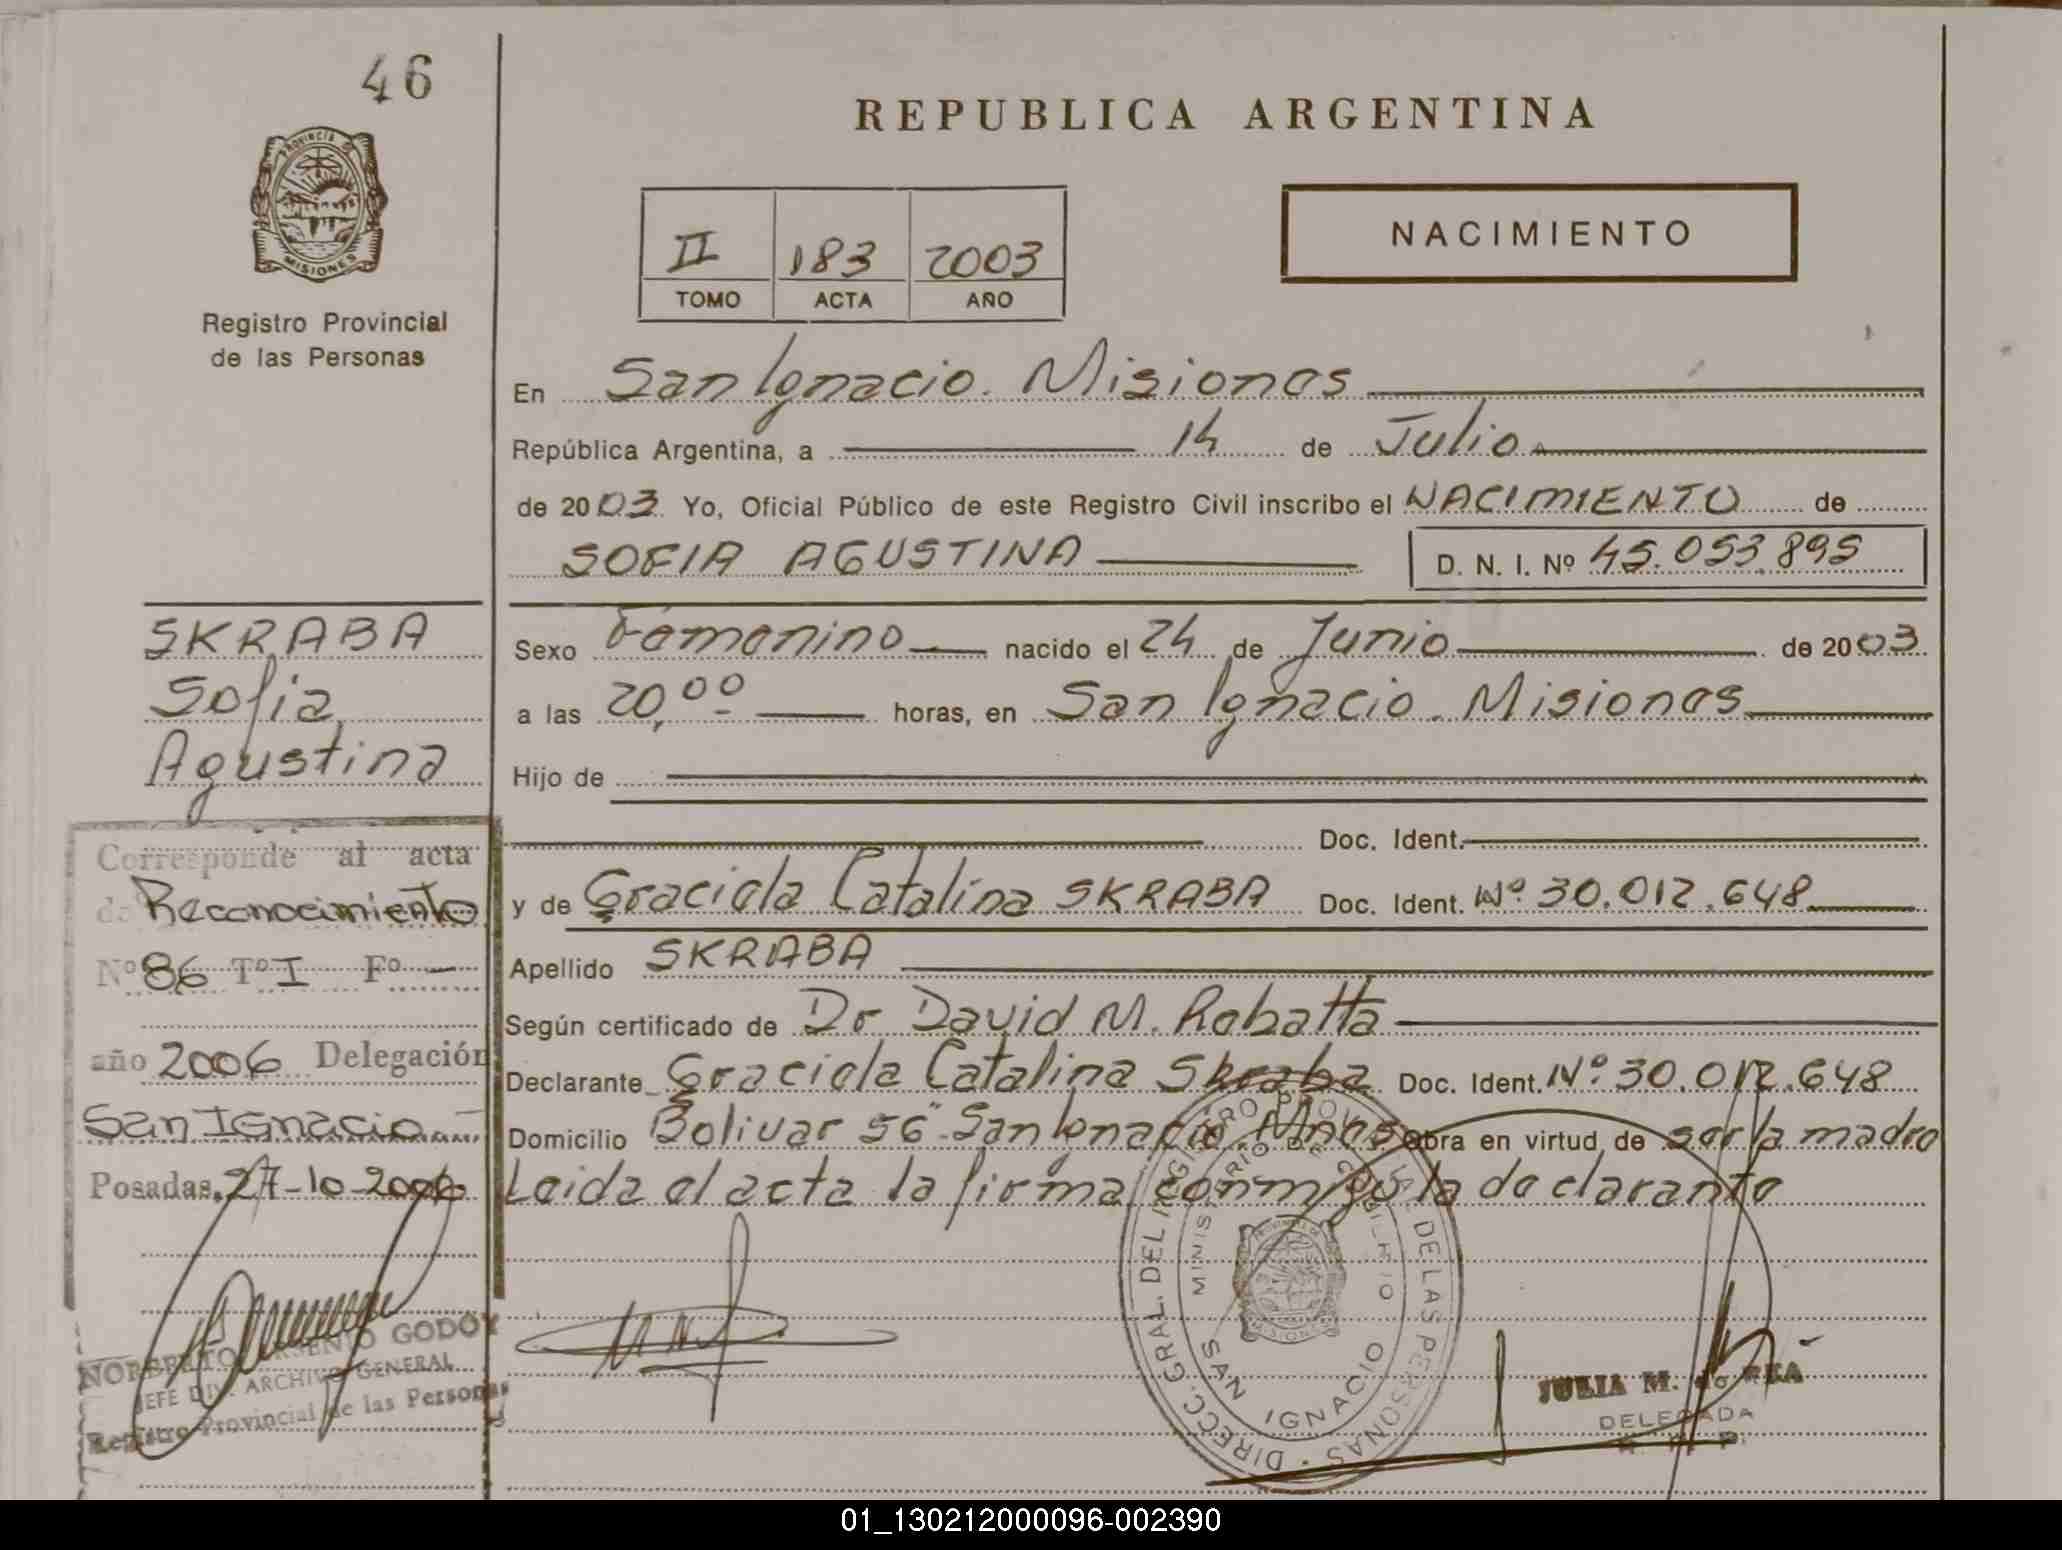 46
PROVINCIA DE
MISIONES
Registro Provincial
de las Personas
SKRABA
Sofia
Agustina
Corresponde al acta
de Reconocimiento
Nº 86 Tº I Fº —
año 2006 Delegación
San Ignacio
Posadas, 27-10-2006
NORBERTO ARSENIO GODOY
JEFE DIV. ARCHIVO GENERAL
Registro Provincial de las Personas
REPUBLICA ARGENTINA
II 183 2003
TOMO ACTA AÑO
NACIMIENTO
En San Ignacio. Misiones
República Argentina, a 14 de Julio
de 2003 Yo, Oficial Público de este Registro Civil inscribo el NACIMIENTO de
SOFIA AGUSTINA D. N. I. Nº 45.053.895
Sexo Femenino nacido el 24 de Junio de 2003
a las 20,00 horas, en San Ignacio. Misiones
Hijo de
Doc. Ident.
y de Graciela Catalina SKRABA Doc. Ident. Nº 30.012.648
Apellido SKRABA
Según certificado de Dr David M. Rabatta
Declarante Graciela Catalina Skraba Doc. Ident. Nº 30.012.648
Domicilio Bolivar 56" San Ignacio. Mnes Obra en virtud de ser la madre
Leida el acta la firma conmigo la declarante
DIRECC. GRAL. DEL REGISTRO PROVINCIAL DE LAS PERSONAS
MINISTERIO DE GOBIERNO
SAN IGNACIO
MISIONES
JULIA M. de REA
DELEGADA
R. P. P.
01_130212000096-002390